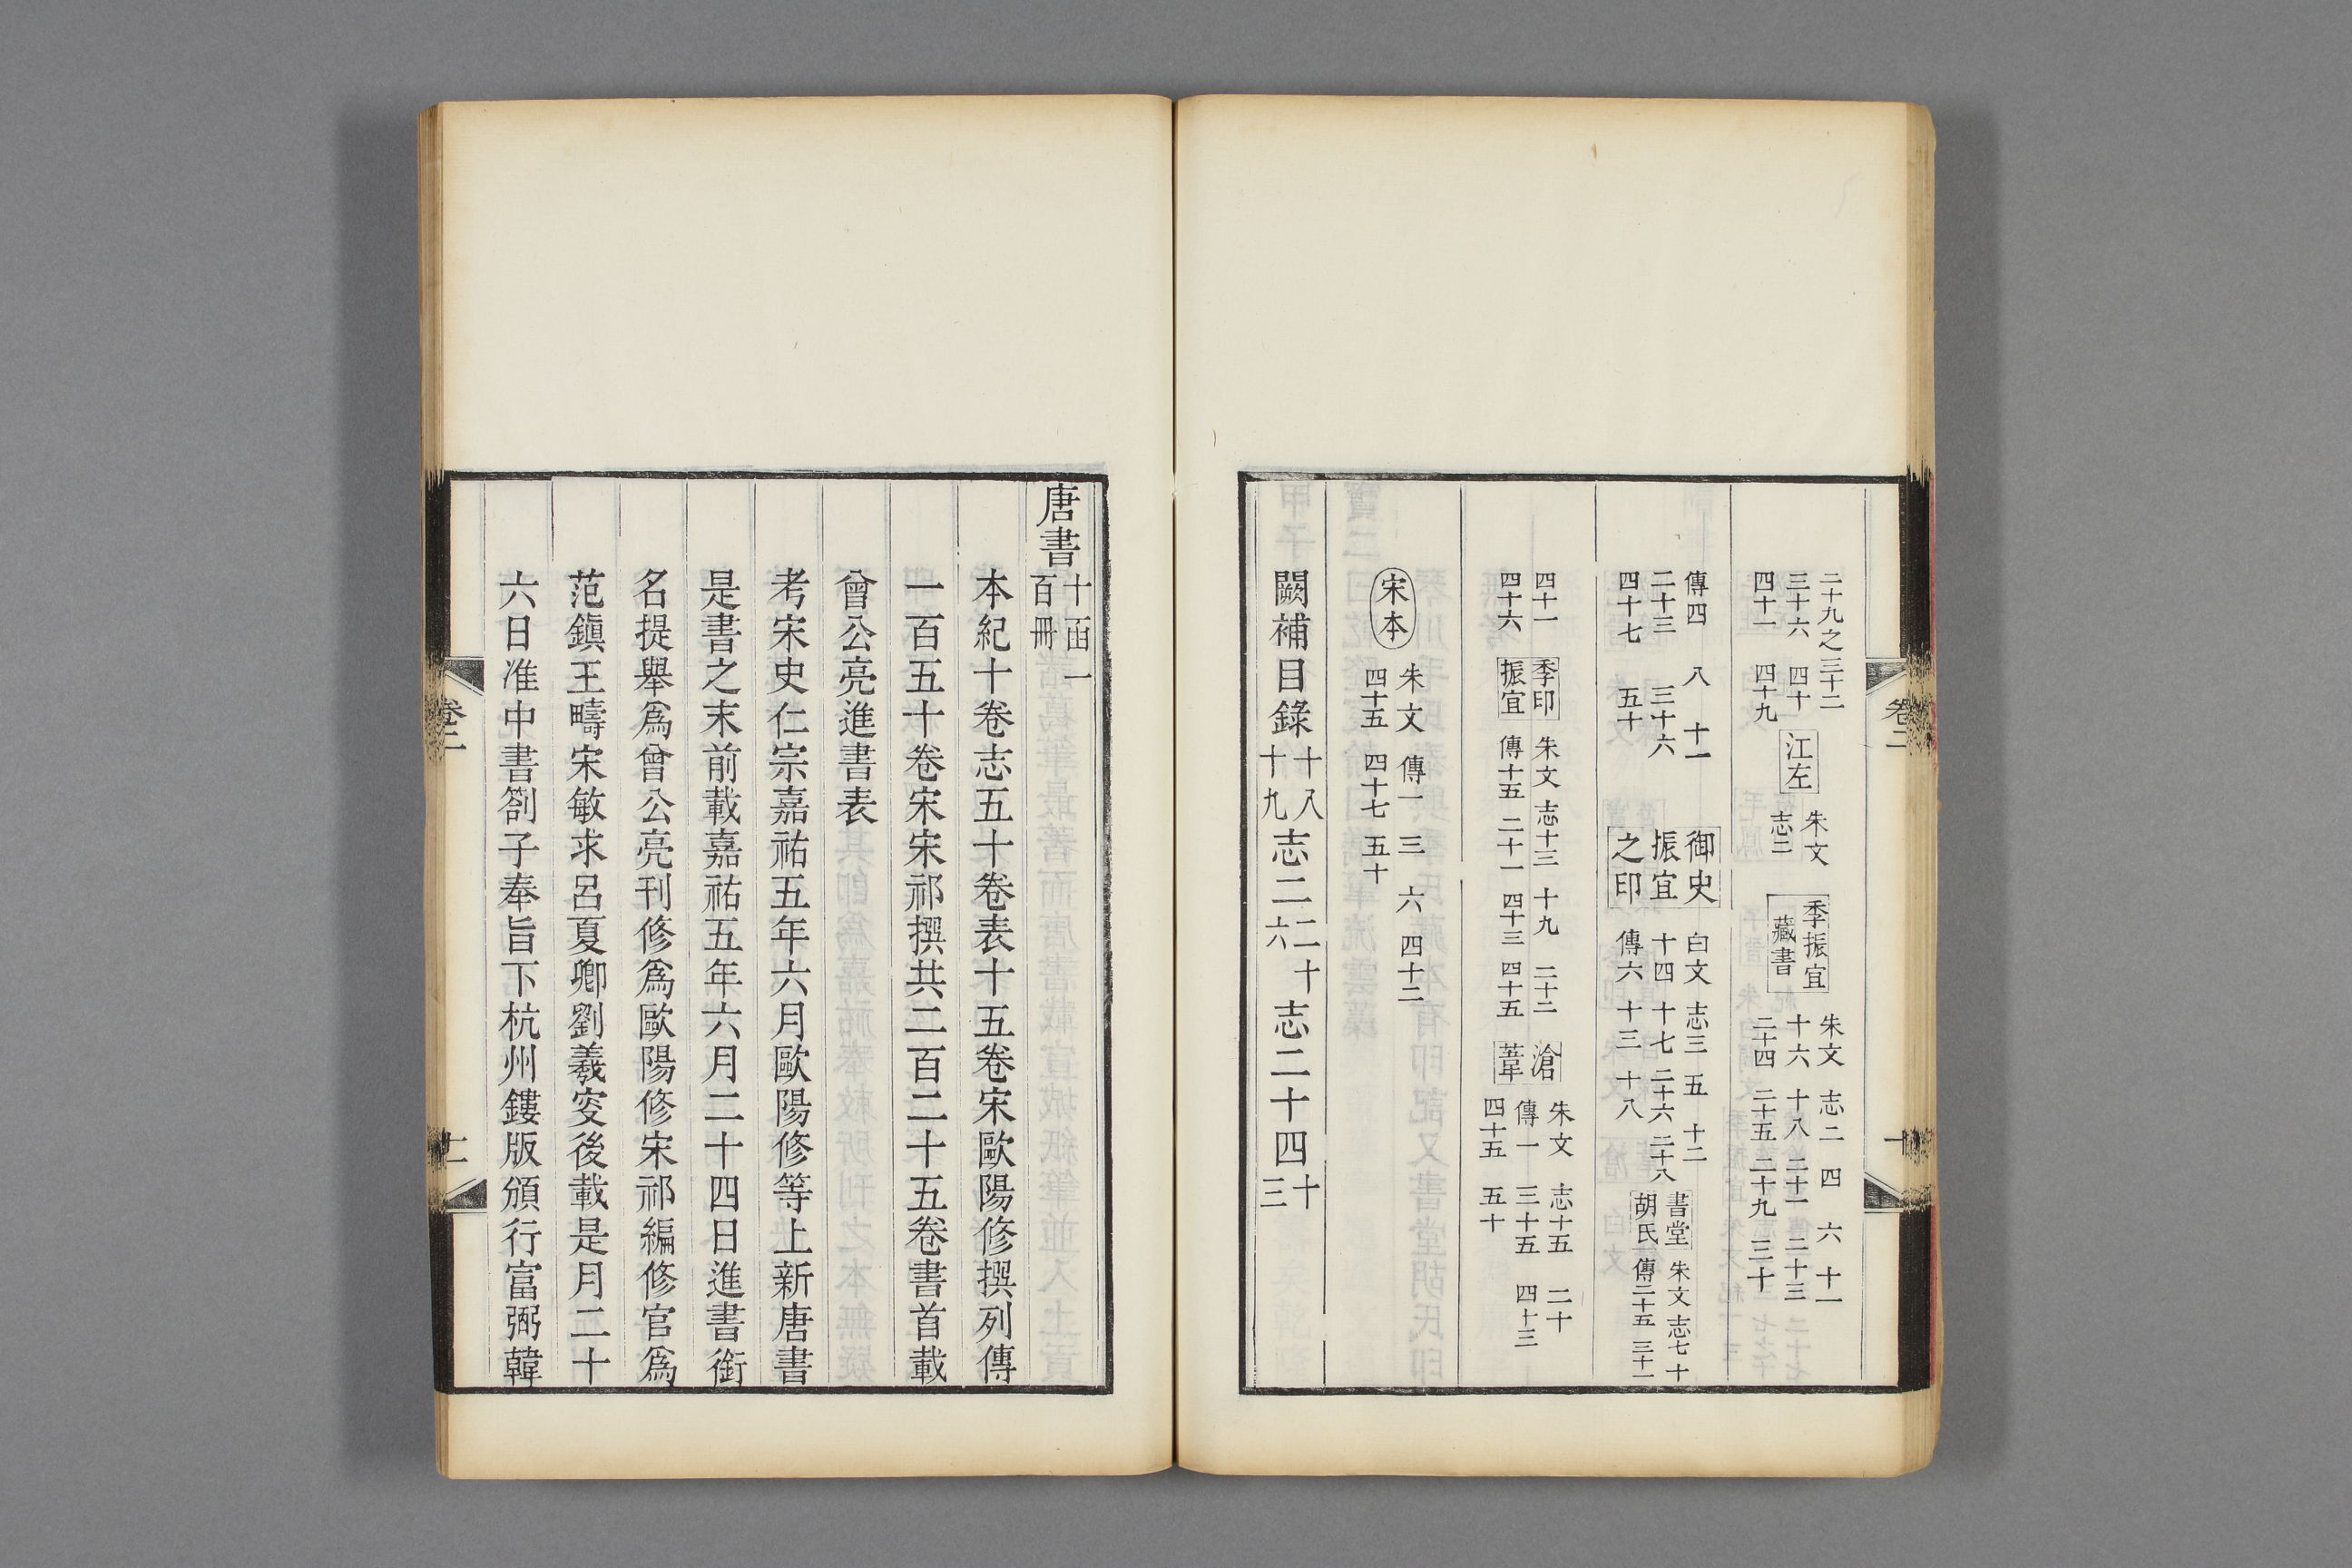 二十九之三十二
三十六 四十
四十一 四十九
江左
朱文
志二
季振宜
藏書
朱文 志二 四 六 十一
十六 十八 二十一 二十三
二十四 二十五 二十九 三十
傳四 八 十一
二十三 三十六
四十七 五十
御史
振宜
之印
白文 志三 五 十二
十四 十七 二十六 二十八
傳六 十三 十八
書堂
胡氏
朱文 志七 十
傳二十五 三十一
四十一
四十六
季印
振宜
朱文 志十三 十九 二十二
傳十五 二十一 四十三 四十五
滄
葦
朱文 志十五 二十
傳一 三十五 四十三
四十五 五十
宋本
朱文 傳一 三 六 四十二
四十五 四十七 五十
闕補目錄十八十九志二二十六志二十四十三
卷二
十
唐書十函一百冊
本紀十卷志五十卷表十五卷宋歐陽修撰列傳
一百五十卷宋宋祁撰共二百二十五卷書首載
曾公亮進書表
考宋史仁宗嘉祐五年六月歐陽修等上新唐書
是書之末前載嘉祐五年六月二十四日進書銜
名提舉爲曾公亮刊修爲歐陽修宋祁編修官爲
范鎭王疇宋敏求呂夏卿劉羲叜後載是月二十
六日准中書劄子奉旨下杭州鏤版頒行富弼韓
卷二
十一